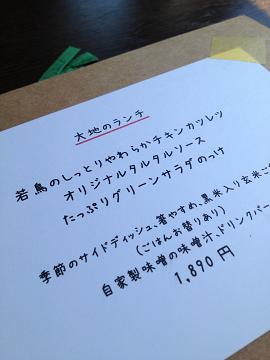 大地のランチ
若鳥のしっとりやわらかチキンカツレツ
オリジナルタルタルソース
たっぷりグリーンサラダのっけ
季節のサイドディッシュ、箸やすめ、黒米入り玄米ご
(ごはんお替りあり)
自家製味噌の味噌汁、ドリンクバー
1,890円